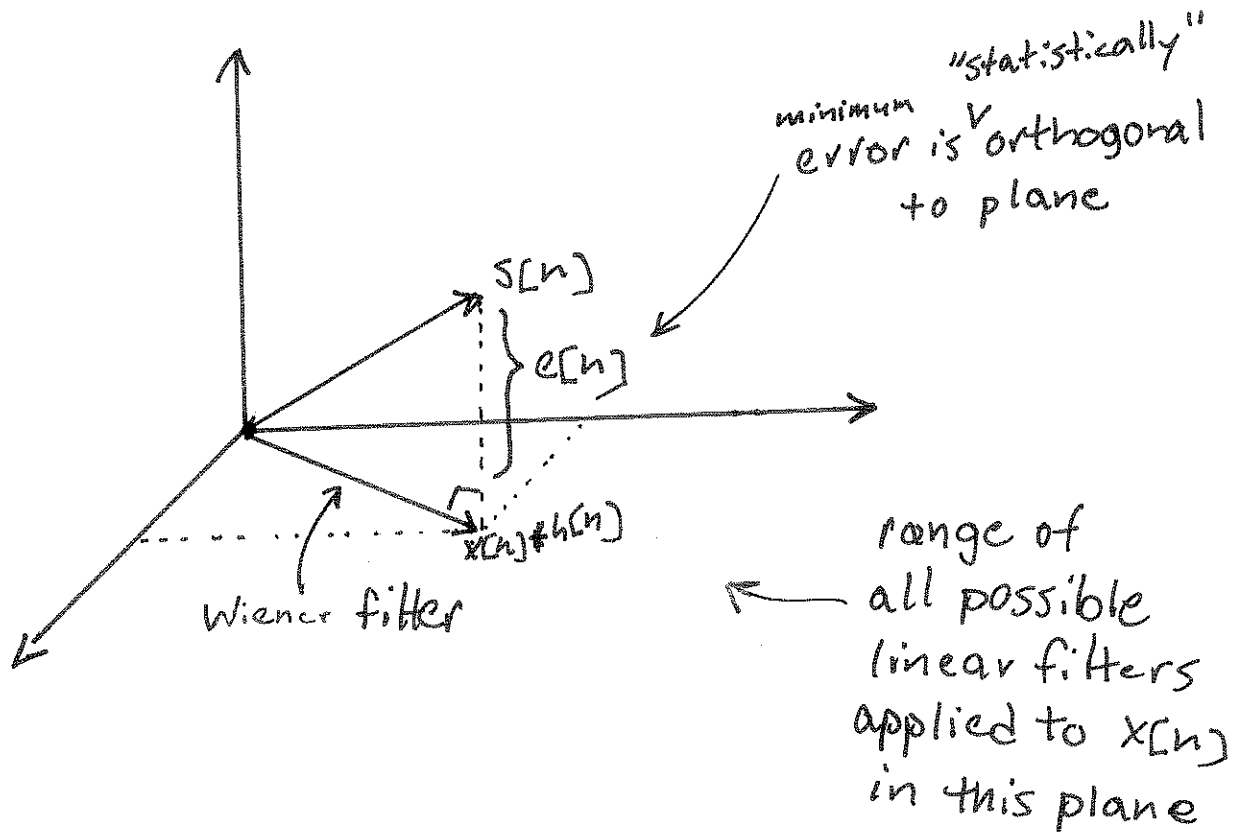 "statistically"
minimum
error is v orthogonal
to plane
s[n]
e[n]
x[n]*h[n]
Wiener filter
range of
all possible
linear filters
applied to x[n]
in this plane